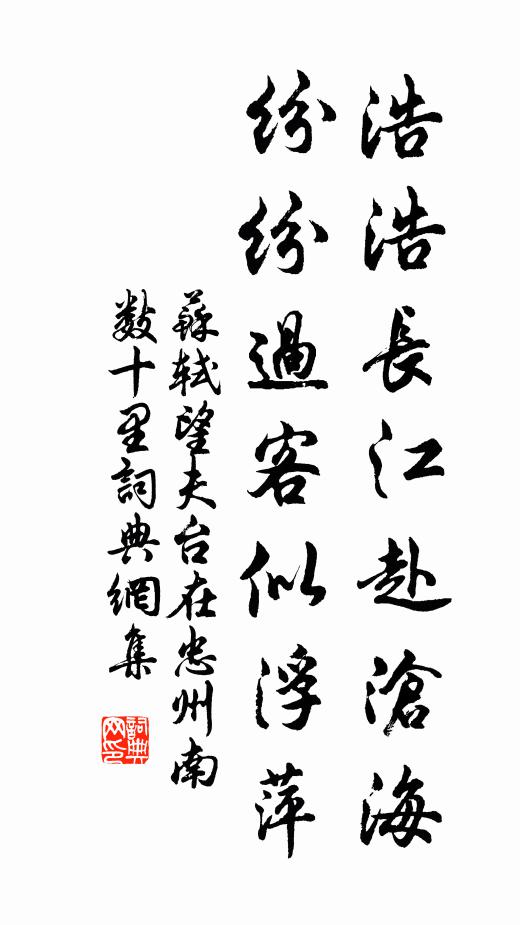 浩浩長江赴滄海
紛紛過客似浮萍
蘇軾望夫台在忠州南
數十里詞典網集
詞典
网印